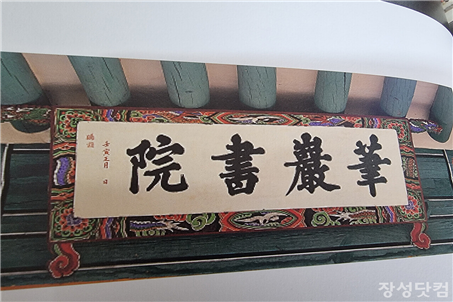 筆巖書院
壬寅五月 日
장성닷컴